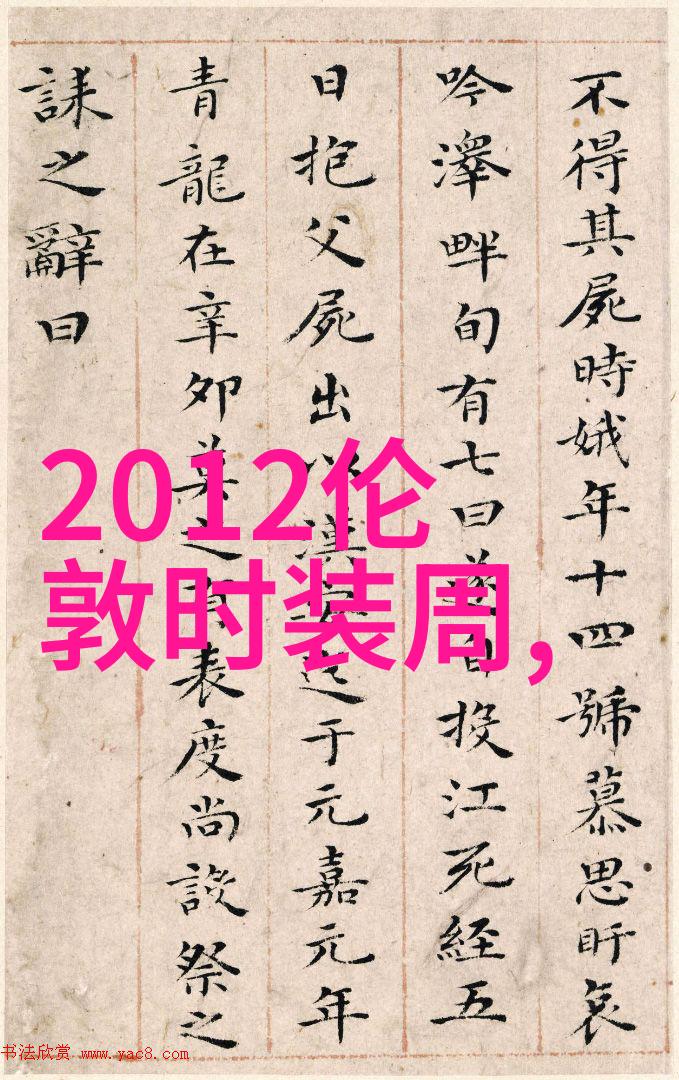 不得其屍時娥年十四號慕思盱哀
吟澤畔旬有七日遂自投江死經五
日抱父屍出以漢安迄于元嘉元年
青龍在辛卯莫之有表度尚設祭之
誄之辭曰
2012伦
敦时装周,
书法欣赏 www.yac8.com